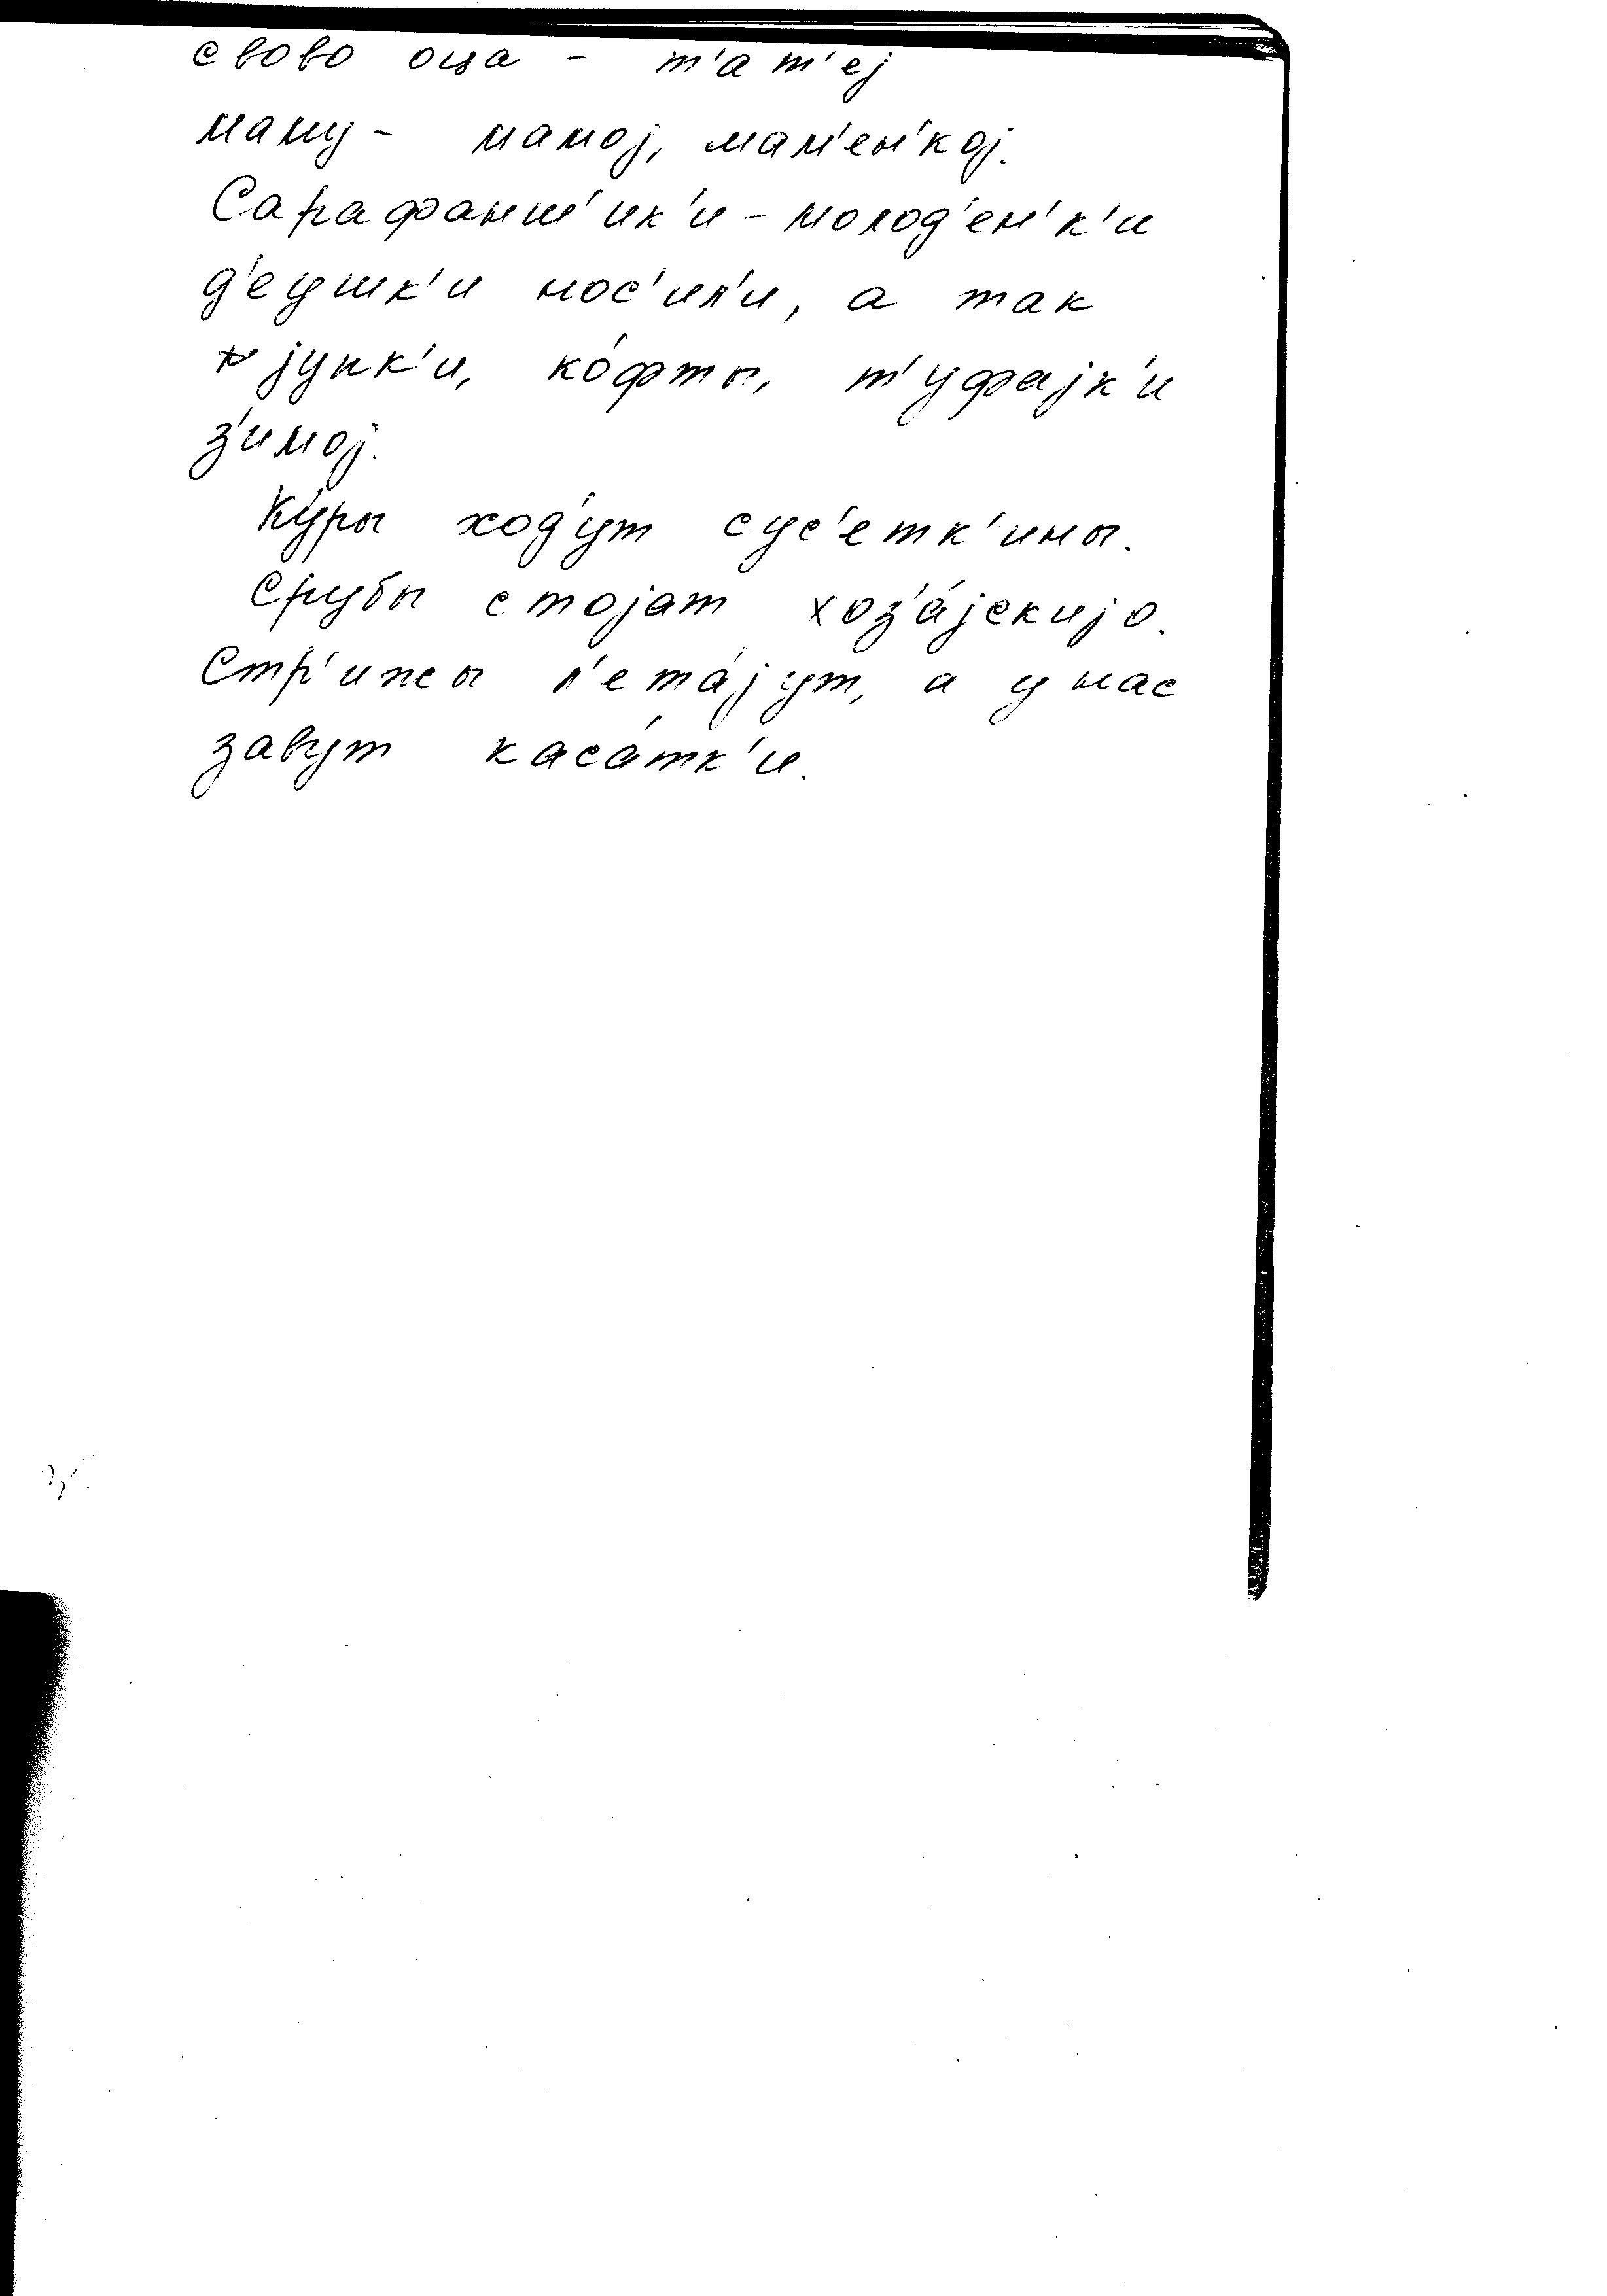 свово оца - т'ат'еj
маму - мамоj, мам'ен'коj.
Сарафанш'ик'и - молод'ен'к'и
д'еушк'и нос'ил'и, а так
jупк'и, ко́фты, т'уфаjк'и
з'имоj.
Ку́ры ход'ут сус'етк'ины.
Срубы стоjат хоз'а́jскиjо.
Стр'ижы л'ета́jут, а у нас
завут каса́тк'и.